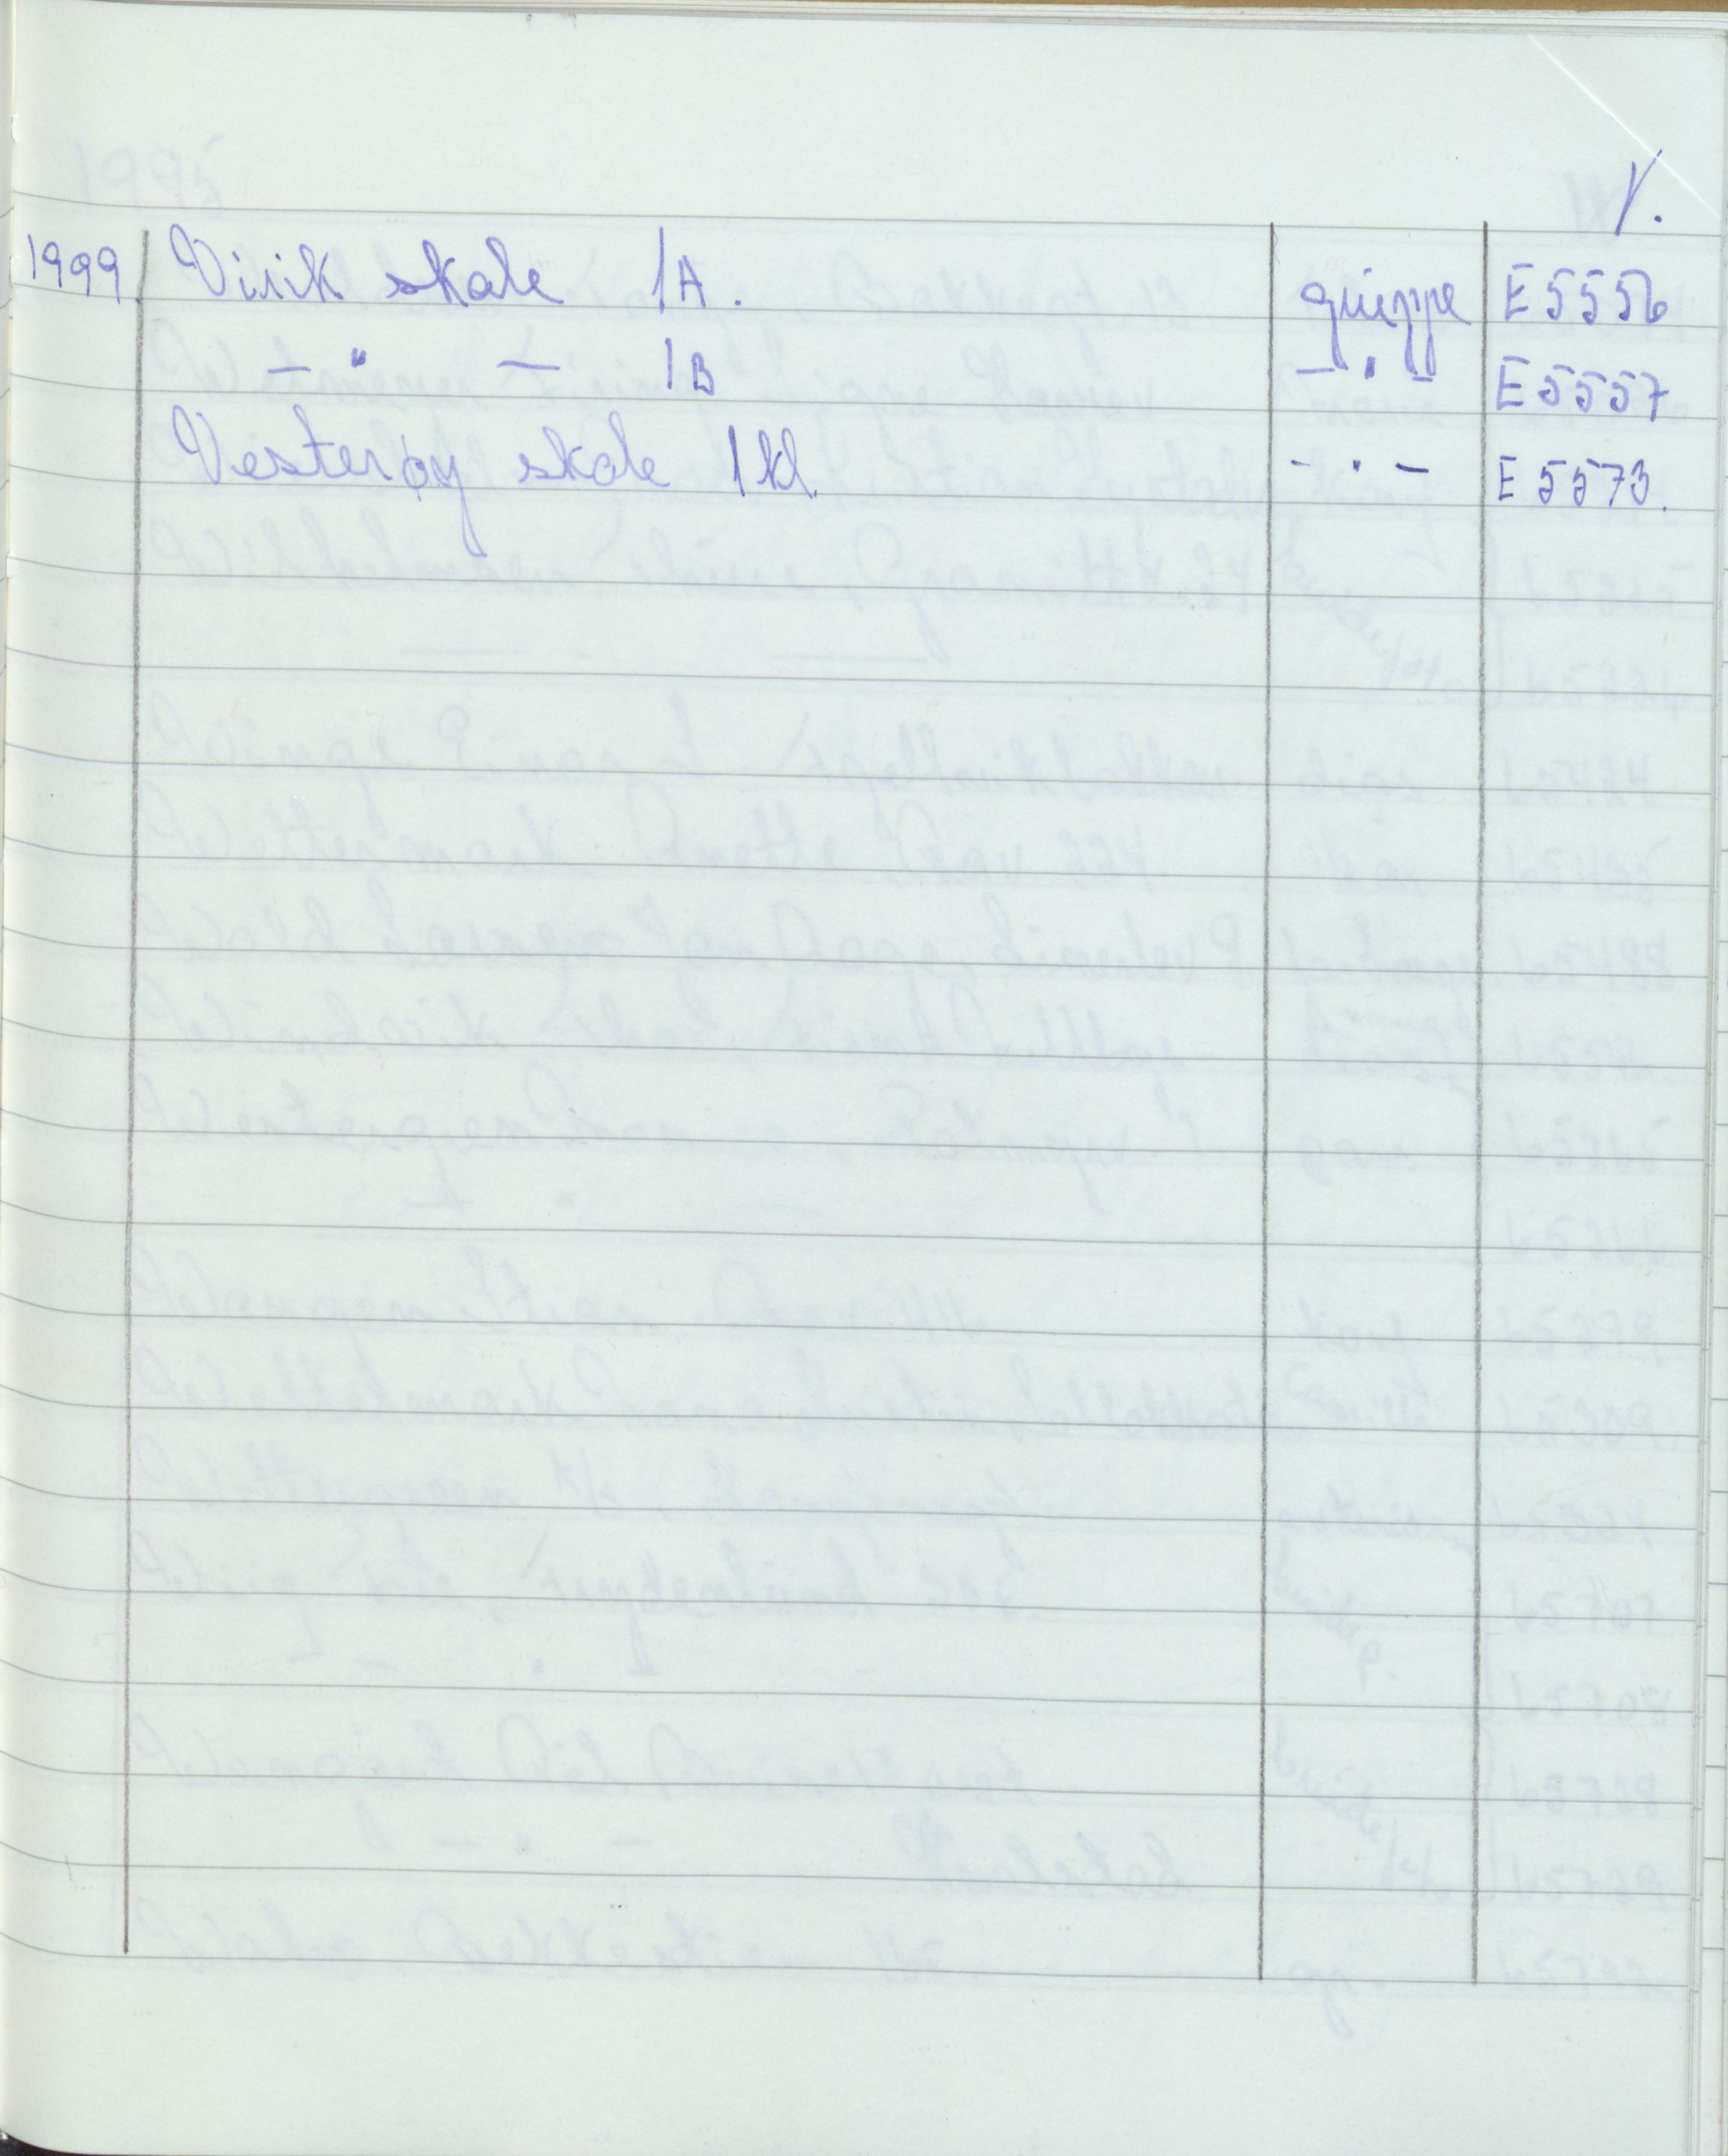 V.
1999. Virik skole 1A. gruppe E5556
— " — 1B — " — E5557
Vesterøy skole 1kl. - " - E5573.